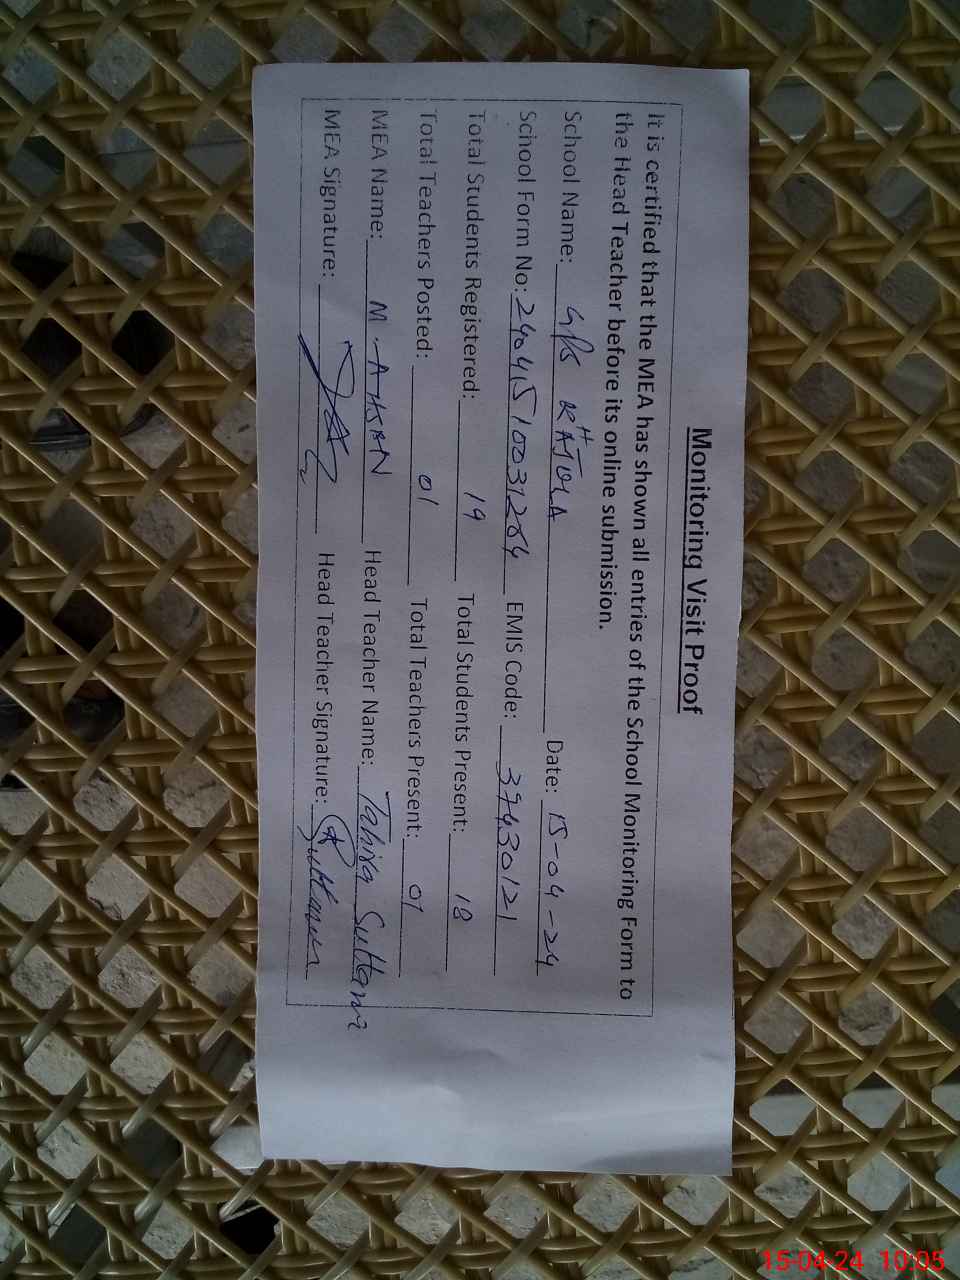 Monitoring Visit Proof
It is certified that the MEA has shown all entries of the School Monitoring Form to
the Head Teacher before its online submission.
School Name: GPS RAJOHA Date: 15-04-24
School Form No: 24041510031284 EMIS Code: 37430121
Total Students Registered: 19 Total Students Present: 18
Total Teachers Posted: 01 Total Teachers Present: 01
MEA Name: M. AHSAN Head Teacher Name: Tahira Sultana
MEA Signature: Head Teacher Signature: RSultana
15-04-24 10:05